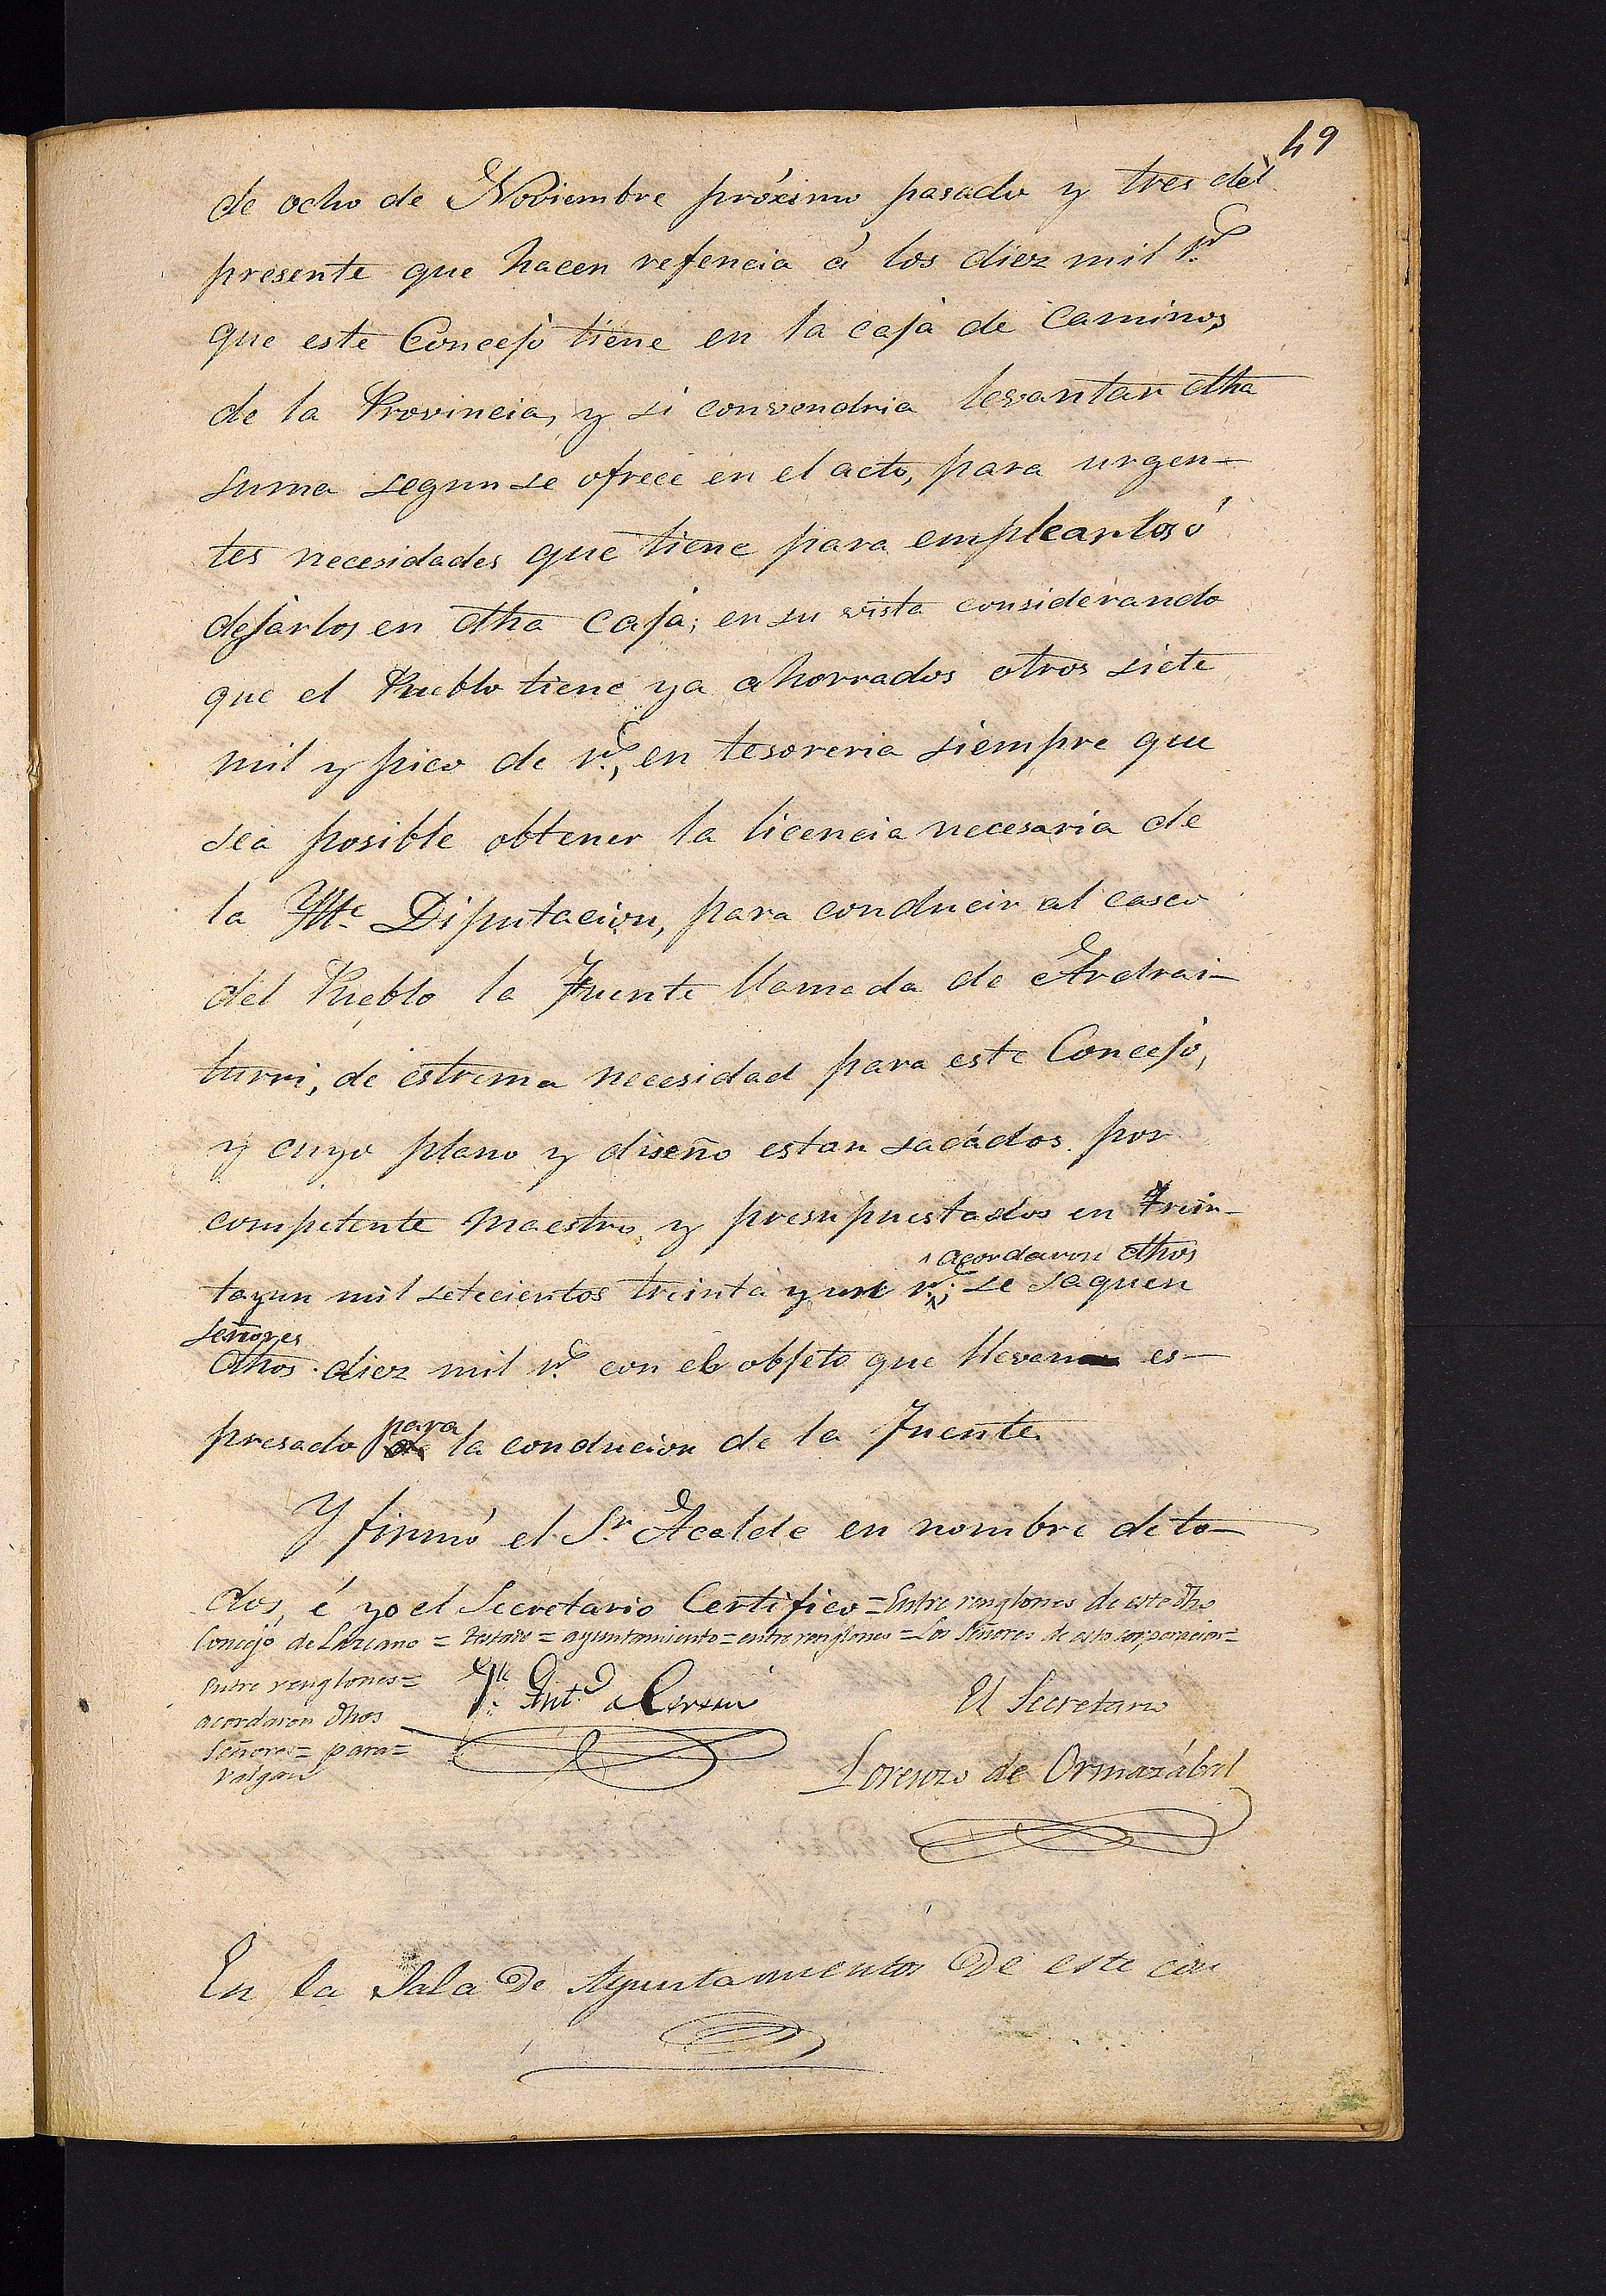 49
de ocho de Noviembre próximo pasado y tres del
presente que hacen refencia á los diez mil r.ˢ
que este Concejo tiene en la caja de Caminos
de la Provincia, y si convendria levantar dha
suma segun se ofrece en el acto, para urgen-
tes necesidades que tiene para emplearlos ó
dejarlos en dha Caja; en su vista considerando
que el Pueblo tiene ya ahorrados otros siete
mil y pico de r.ˢ, en tesoreria siempre que
sea posible obtener la licencia necesaria de
la Ylte Diputacion, para conducir al casco
del Pueblo la Fuente llamada de Ardrai-
turri, de estrema necesidad para este Concejo,
y cuyo plano y diseño estan sacádos por
competente Maestro, y presupuestados en Trein-
acordaron dhos
tayun mil setecientos treinta y un r.ˢ; se saquen
señores
dhos diez mil r.ˢ con el objeto que llevan es-
para
presado la conducion de la Fuente.
Y firmó el Sr. Alcalde en nombre de to-
dos, é yo el Secretario Certifico = Entre renglones de este dho
Concejo de Lazcano = testado = ayuntamiento = entre renglones = Los Señores de esta corporacion =
Entre renglones =
acordaron dhos
Señores = para =
valgan
Ant.º
El Secretario
Lorenzo de Ormazábal
En la Sala de Ayuntamientos de este con